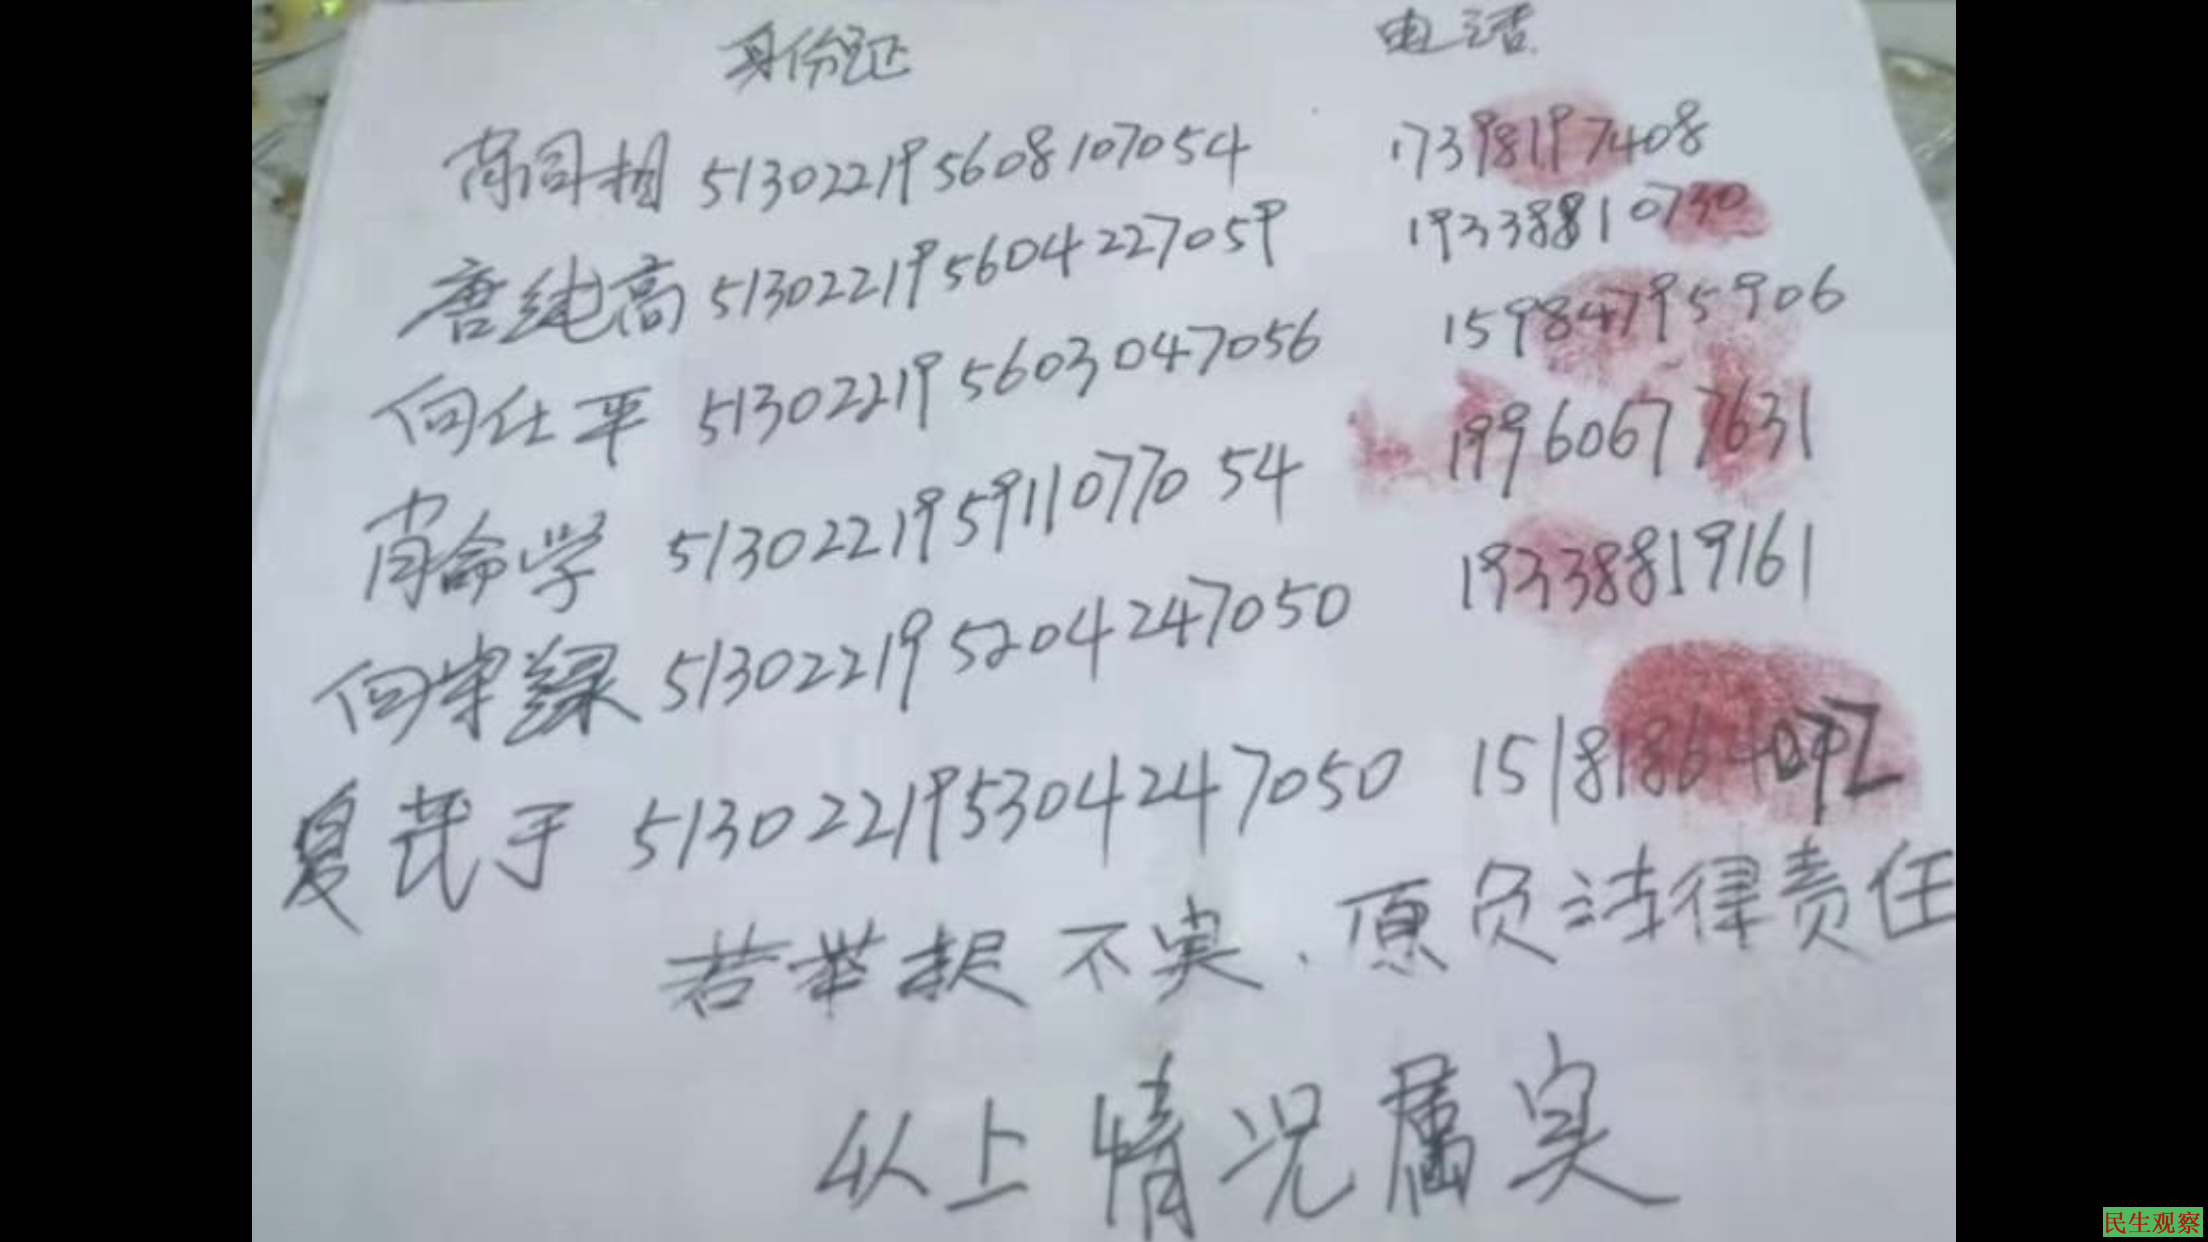 身份证 电话
肖同相 513022195608107054 17398197408
唐纯高 513022195604227059 19338810730
向仕平 513022195603047056 15984795906
肖命学 513022195911077054 19960677631
向宗 513022195204247050 19338819161
于 513022195304247050 151818640
若举报不实、愿负法律责任
以上情况属实
民生观察